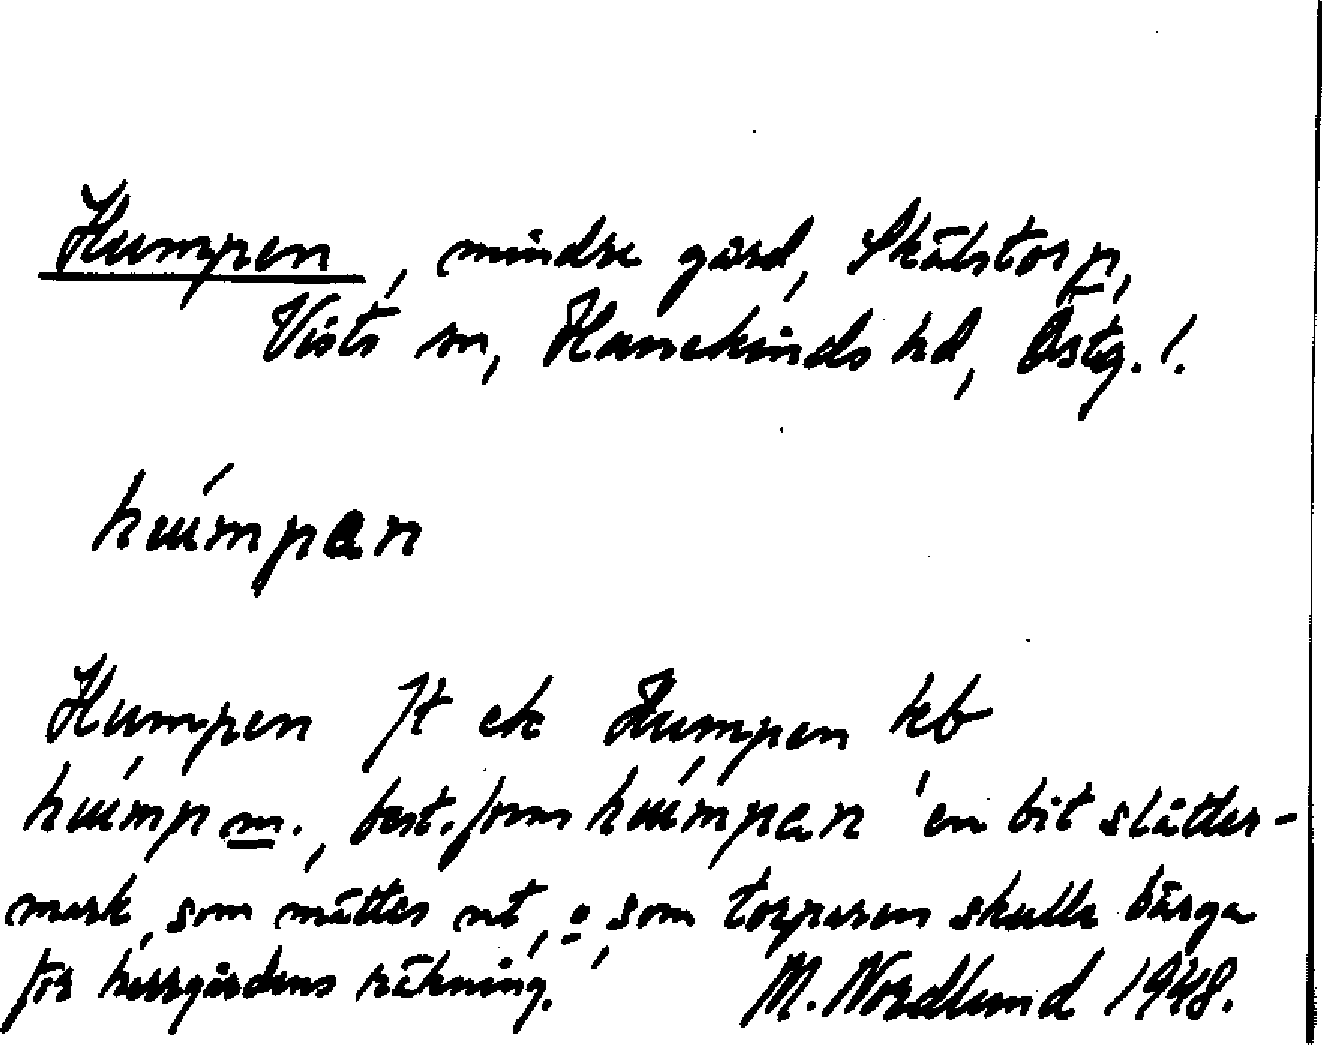 Humpen, mindre gård, Skålstorp,
Vists sn, Hanekinds hd, Östg. l.
húmpan
Humpen Jt ek Humpen kb
húmp m., best. form húmpan 'en bit slåtter-
mark, som mättes ut, o som torparen skulle bärga
för herrgårdens räkning.' M. Nordlund 1948.